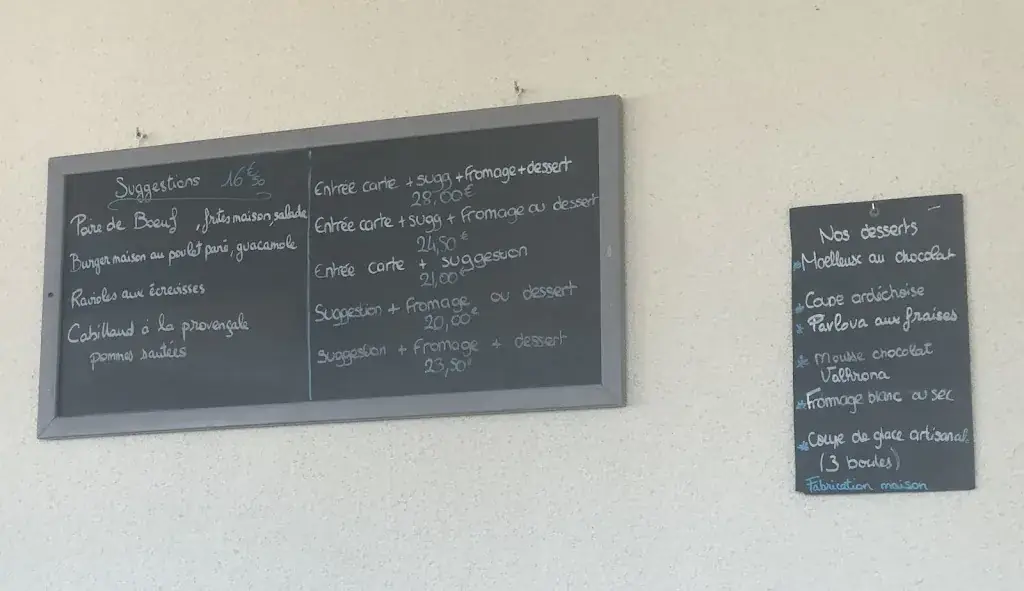 Suggestions 16€50
Poire de Boeuf , frites maison, salade
Burger maison au poulet pané, guacamole
Ravioles aux écrevisses
Cabillaud à la provençale
pommes sautées
Entrée carte + sugg + fromage + dessert
28,00€
Entrée carte + sugg + Fromage ou dessert
24,50€
Entrée carte + suggestion
21,00€
Suggestion + Fromage ou dessert
20,00€
Suggestion + Fromage + dessert
23,50€
Nos desserts
* Moelleux au chocolat
* Coupe ardéchoise
* Pavlova aux fraises
* Mousse chocolat
Valhrona
* Fromage blanc ou sec
* Coupe de glace artisanal
(3 boules)
Fabrication maison